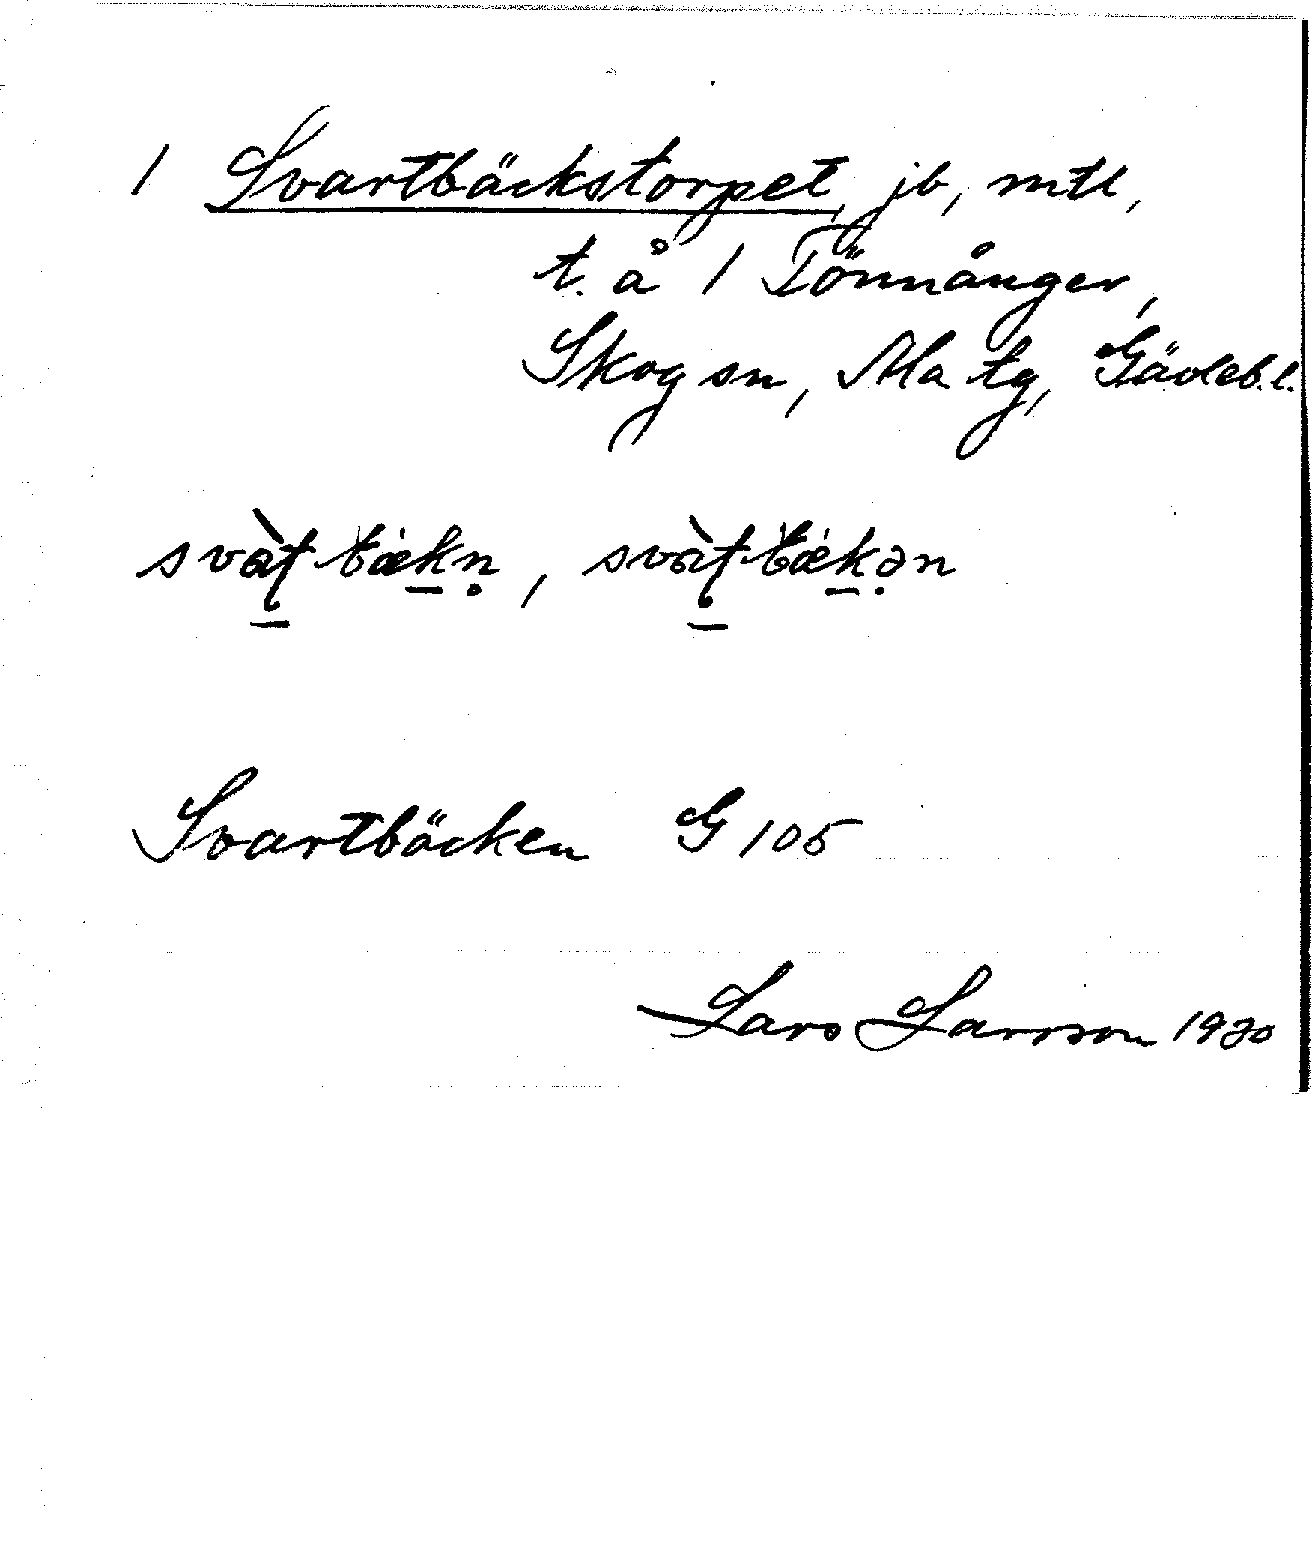 1 Svartbäckstorpet, jb, mtl,
t. å 1 Tönnånger,
Skog sn, Ala tg, Gävleb.l.
svàʈbækn̥, svàʈbækən
Svartbäcken G 105
Lars Larsson 1930